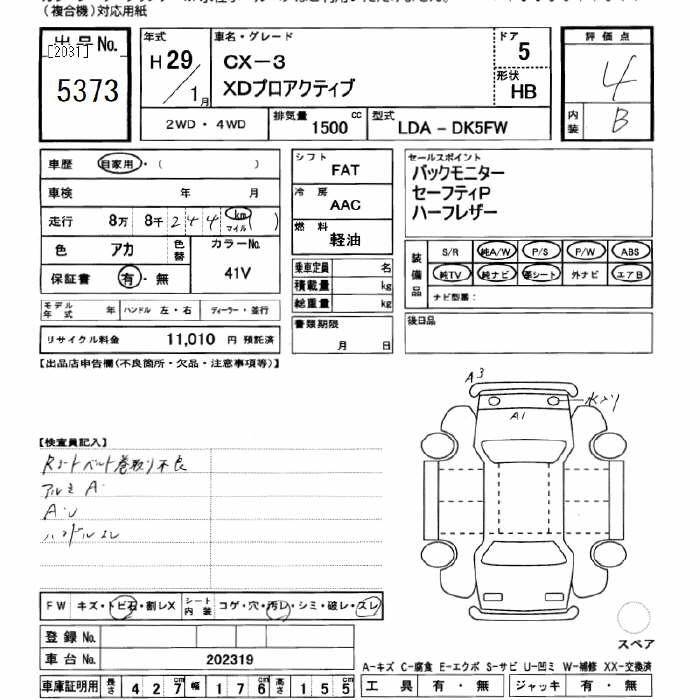 （複合機）対応用紙
出品No.
[2031]
5373
年式
H29/1月
車名・グレード
CX-3
XDプロアクティブ
ドア
5
形状
HB
評価点
4
内装
B
2WD・4WD
排気量 1500 cc
型式 LDA-DK5FW
車歴 自家用・（ ）
車検 年 月
走行 8万 8千 2 4 4 km マイル ( )
色 アカ
色替
カラーNo.
41V
保証書 有・無
モデル年式 年 ハンドル 左・右 ディーラー・並行
リサイクル料金 11,010 円 預託済
シフト
FAT
冷房
AAC
燃料
軽油
乗車定員 名
積載量 kg
総重量 kg
書類期限
月 日
セールスポイント
バックモニター
セーフティP
ハーフレザー
装備品
S/R 純A/W P/S P/W ABS
純TV 純ナビ 革シート 外ナビ エアB
ナビ型番：
後日品
【出品店申告欄(不良箇所・欠品・注意事項等)】
A3
水メリ
A1
【検査員記入】
Rシートベルト巻取り不良
アルミ A・
A・U
ハンドルスレ
FW キズ・トビ石・割レX
シート内装 コゲ・穴・汚レ・シミ・破レ・スレ
登録No.
車台No. 202319
スペア
A-キズ C-腐食 E-エクボ S-サビ U-凹ミ W-補修 XX-交換済
車庫証明用 長さ 427 幅 176 高さ 155
工具 有・無 ジャッキ 有・無